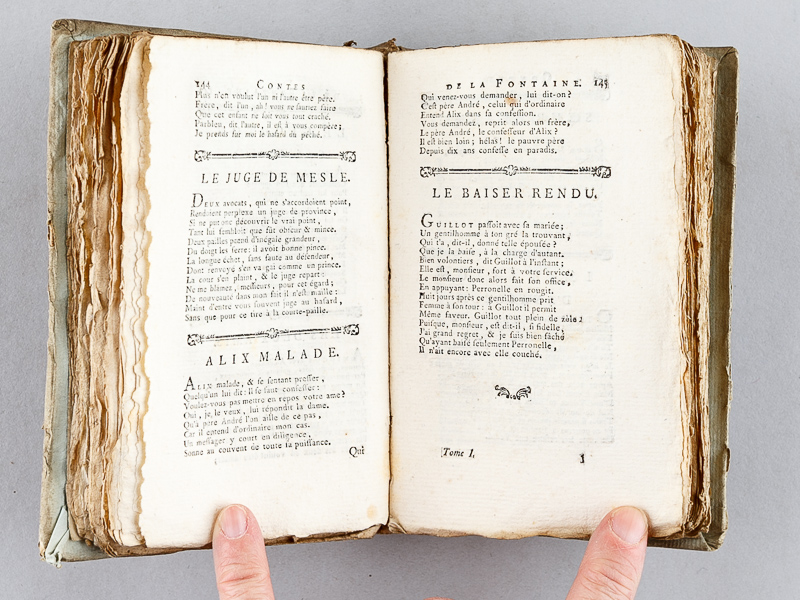 144 CONTES
Mais n'en voulut l'un ni l'autre être père.
Frere, dit l'un, ah! vous ne sauriez faire
Que cet enfant ne soit vous tout craché.
Parbleu, dit l'autre, il est à vous compère;
Je prends sur moi le hasard du péché.
LE JUGE DE MESLE.
DEUX avocats, qui ne s'accordoient point,
Rendoient perplexe un juge de province,
Si ne put onc découvrir le vrai point,
Tant lui sembloit que fût obscur & mince.
Deux pailles prend d'inégale grandeur,
Du doigt les serre: il avoit bonne pince.
La longue échet, sans faute au défendeur,
Dont renvoyé s'en va gai comme un prince.
La cour s'en plaint, & le juge repart:
Ne me blâmez, messieurs, pour cet égard;
De nouveauté dans mon fait il n'est maille:
Maint d'entre vous souvent juge au hasard,
Sans que pour ce tire à la courte-paille.
ALIX MALADE.
ALIX malade, & se sentant presser,
Quelqu'un lui dit: Il se faut confesser:
Voulez-vous pas mettre en repos votre ame?
Oui, je le veux, lui répondit la dame.
Qu'à pere André l'on aille de ce pas,
Car il entend d'ordinaire mon cas.
Un messager y court en diligence,
Sonne au couvent de toute sa puissance.
Qui
DE LA FONTAINE. 145
Qui venez-vous demander, lui dit-on?
C'est père André, celui qui d'ordinaire
Entend Alix dans sa confession.
Vous demandez, reprit alors un frère,
Le père André, le confesseur d'Alix?
Il est bien loin; hélas! le pauvre père
Depuis dix ans confesse en paradis.
LE BAISER RENDU.
GUILLOT passoit avec sa mariée;
Un gentilhomme à son gré la trouvant,
Qui t'a, dit-il, donné telle épousée?
Que je la baise, à la charge d'autant.
Bien volontiers, dit Guillot à l'instant;
Elle est, monsieur, fort à votre service.
Le monsieur donc alors fait son office,
En appuyant: Perronelle en rougit.
Huit jours après ce gentilhomme prit
Femme à son tour: à Guillot il permit
Même faveur. Guillot tout plein de zèle:
Puisque, monsieur, est dit-il, si fidelle,
J'ai grand regret, & je suis bien fâché
Qu'ayant baisé seulement Perronelle,
Il n'ait encore avec elle couché.
Tome I.